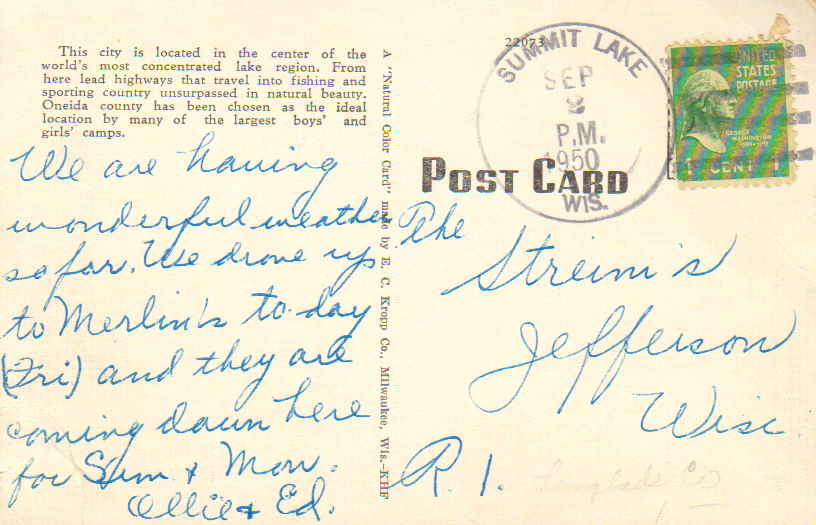 This city is located in the center of the
world's most concentrated lake region. From
here lead highways that travel into fishing and
sporting country unsurpassed in natural beauty.
Oneida county has been chosen as the ideal
location by many of the largest boys' and
girls' camps.
We are having
wonderful weather
so far. We drove up
to Merlin's to-day
(Fri) and they are
coming down here
for Sun & Mon.
Ollie & Ed.
A "Natural Color Card" made by E. C. Kropp Co., Milwaukee, Wis.—KHF
22073
SUMMIT LAKE
SEP
2
P.M.
1950
WIS.
UNITED
STATES
POSTAGE
GEORGE
WASHINGTON
1 CENT
POST CARD
The
Streim's
Jefferson
Wisc.
R. 1.
Langlade Co